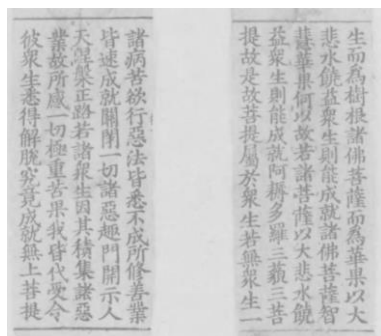 生而為樹根諸佛菩薩而為華果以大
悲水饒益眾生則能成就諸佛菩薩智
慧華果何以故若諸菩薩以大悲水饒
益眾生則能成就阿耨多羅三藐三菩
提故是故菩提屬於眾生若無眾生一
諸病苦欲行惡法皆悉不成所修善業
皆速成就關閉一切諸惡趣門開示人
天涅槃正路若諸眾生因其積集諸惡
業故所感一切極重苦果我皆代受令
彼眾生悉得解脫究竟成就無上菩提